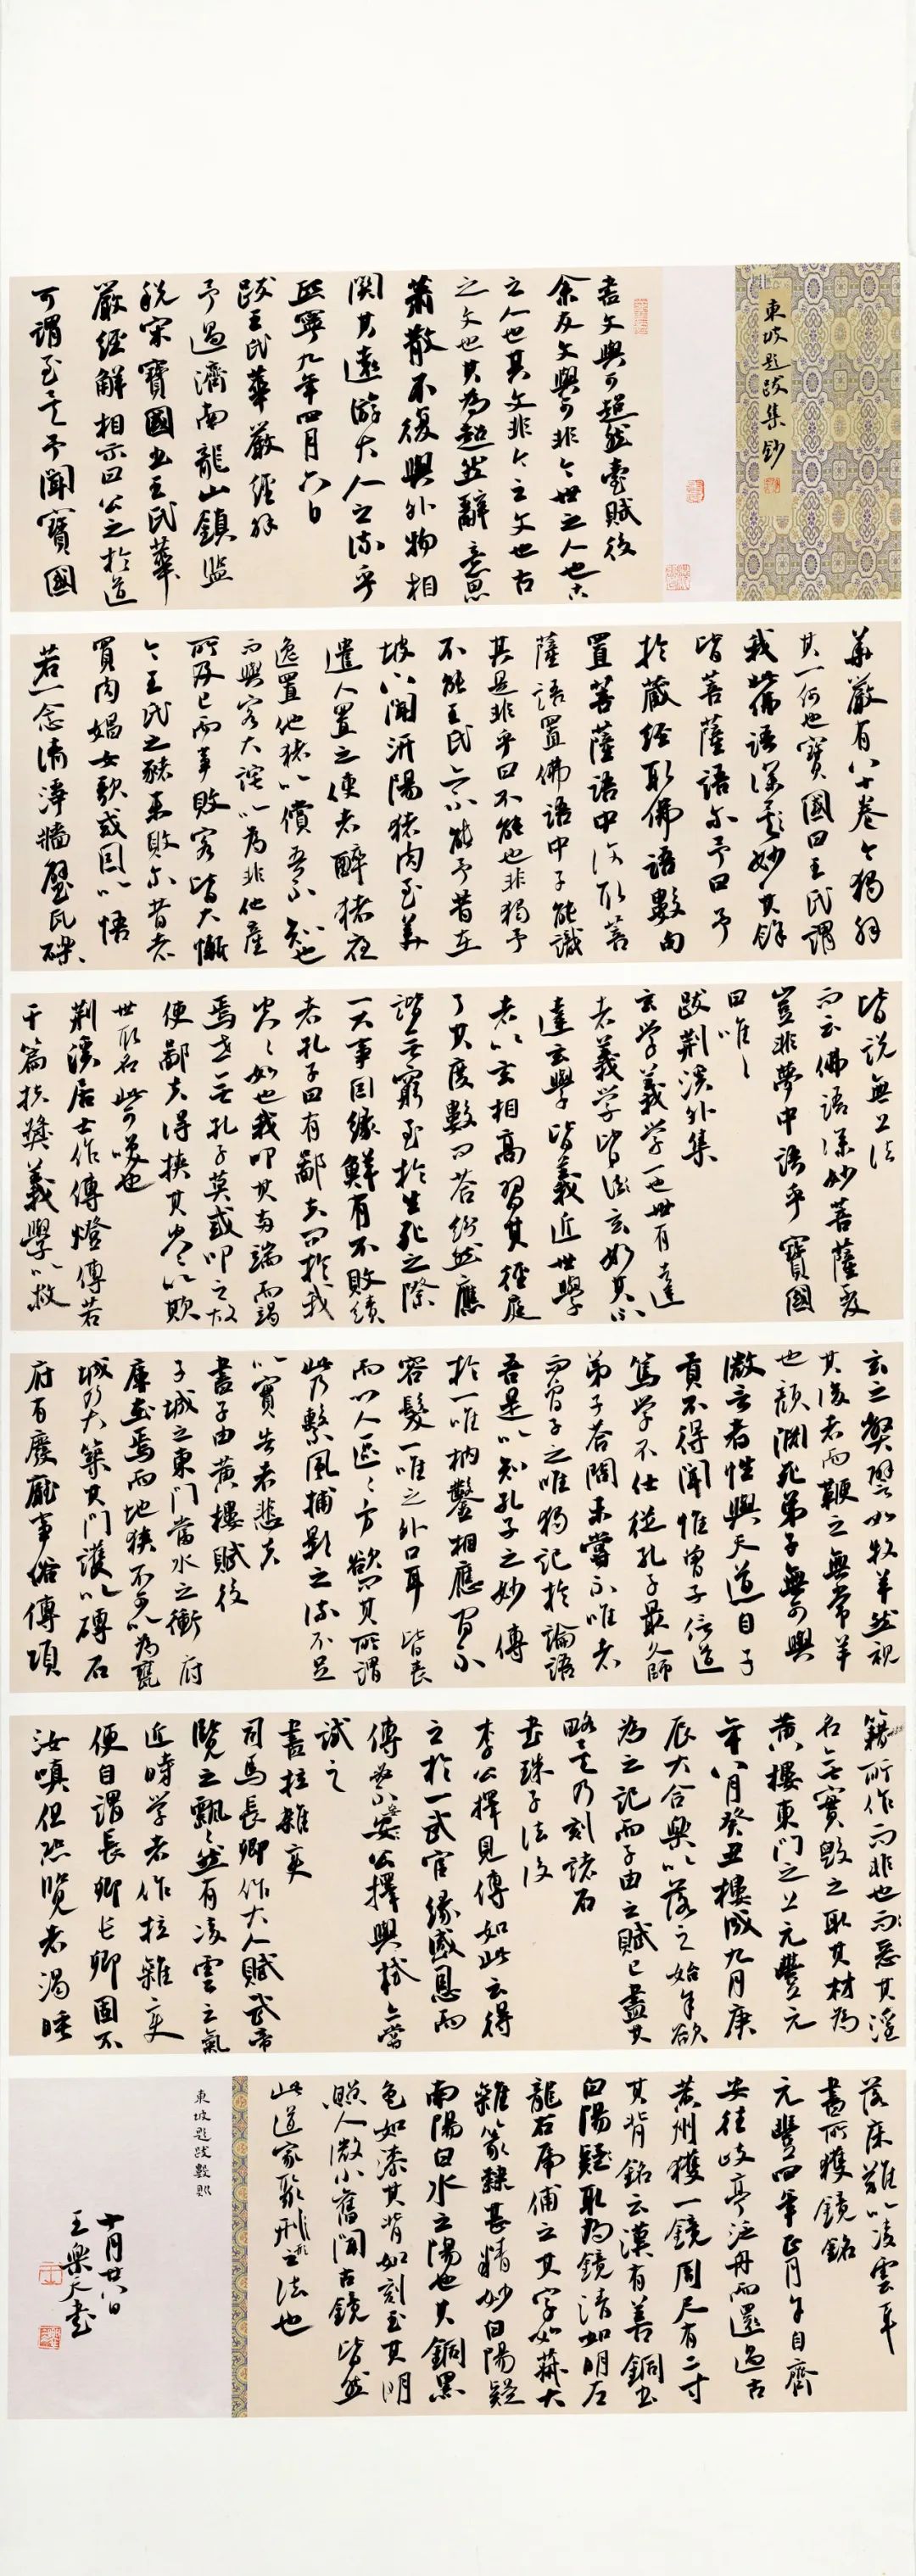 東坡題跋集鈔
書文與可超然臺賦後
余友文與可非今世之人也古
之人也其文非今之文也古
之文也其為超然辭意思
蕭散不復與外物相
關其遠游大人之流乎
熙寧九年四月六日
跋王氏華嚴經解
予過濟南龍山鎮監
稅宋寶國出王氏華
嚴經解相示曰公之於道
可謂至矣予聞寶國
華嚴有八十卷今獨解
其一何也寶國曰王氏謂
我此佛語深妙其餘
皆菩薩語尔予曰予
於藏經取佛語數句
置菩薩語中復取菩
薩語置佛語中子能識
其是非乎曰不能也非獨予
不能王氏亦不能予昔在
坡以聞汧陽猪肉至美
遣人置之使者醉猪夜
逸置他猪以償吾不知也
而與客大詫以為非他產
所及已而事敗客皆大慚
今王氏之豬未敗尔昔者
買肉娼女歌或因以悟
若一念清淨牆壁瓦礫
皆說無上法
而云佛語深妙菩薩反
豈非夢中語乎寶國
曰唯唯
跋荆溪外集
玄学義学一也世有達
者義学皆玄如其不
達玄學皆義近世學
者以玄相高習其徑庭
了其度數問答紛然應
諾無窮至於生死之際
一大事因緣鮮有不敗績
者孔子曰有鄙夫問於我
空空如也我叩其兩端而竭
焉世無孔子莫或叩之故
使鄙夫得挾其空空以欺
世取名此可笑也
荆溪居士作傳燈傳若
干篇扶獎義學以救
玄之弊譬如牧羊然視
其後者而鞭之無常羊
也顏淵死弟子無可與
微言者性與天道自子
貢不得聞惟曾子信道
篤学不仕從孔子最久師
弟子答問未嘗不唯者
而曾子之唯獨記於論語
吾是以知孔子之妙傳
於一唯枘鑿相應間不
容髮一唯之外口耳皆喪
而門人區區方欲問其所謂
此乃繫風捕影之流不足
以實告者悲夫
書子由黃樓賦後
子城之東門當水之衝府
庫在焉而地狹不可以為甕
城乃大築其門護以磚石
府有廢廳事俗傳項
籍所作而非也而惡其淫
名無實毀之取其材為
黃樓東門之上元豐元
年八月癸丑樓成九月庚
辰大合樂以落之始余欲
為之記而子由之賦已盡其
略矣乃刻諸石
書珠子法後
李公擇見傳如此云得
之於一武官緣感恩而
傳必不妄公擇與拭亦當
試之
書拉雜變
司馬長卿作大人賦武帝
覽之飄飄然有凌雲之氣
近時学者作拉雜變
便自謂長卿長卿固不
汝嗔但恐覽者渴睡
落床難以凌雲耳
書所獲鏡銘
元豐四年正月余自齊
安往岐亭泛舟而還過古
黃州獲一鏡周尺有二寸
其背銘云漢有善銅出
白陽疑取為鏡清如明左
龍右虎俌之其字如菽大
雜篆隸甚精妙白陽疑
南陽白水之陽也其銅黑
色如漆其背如刻玉其明
照人微小舊聞古鏡皆然
此道家聚形之法也
東坡題跋數則
十月廿八日
王樂天書